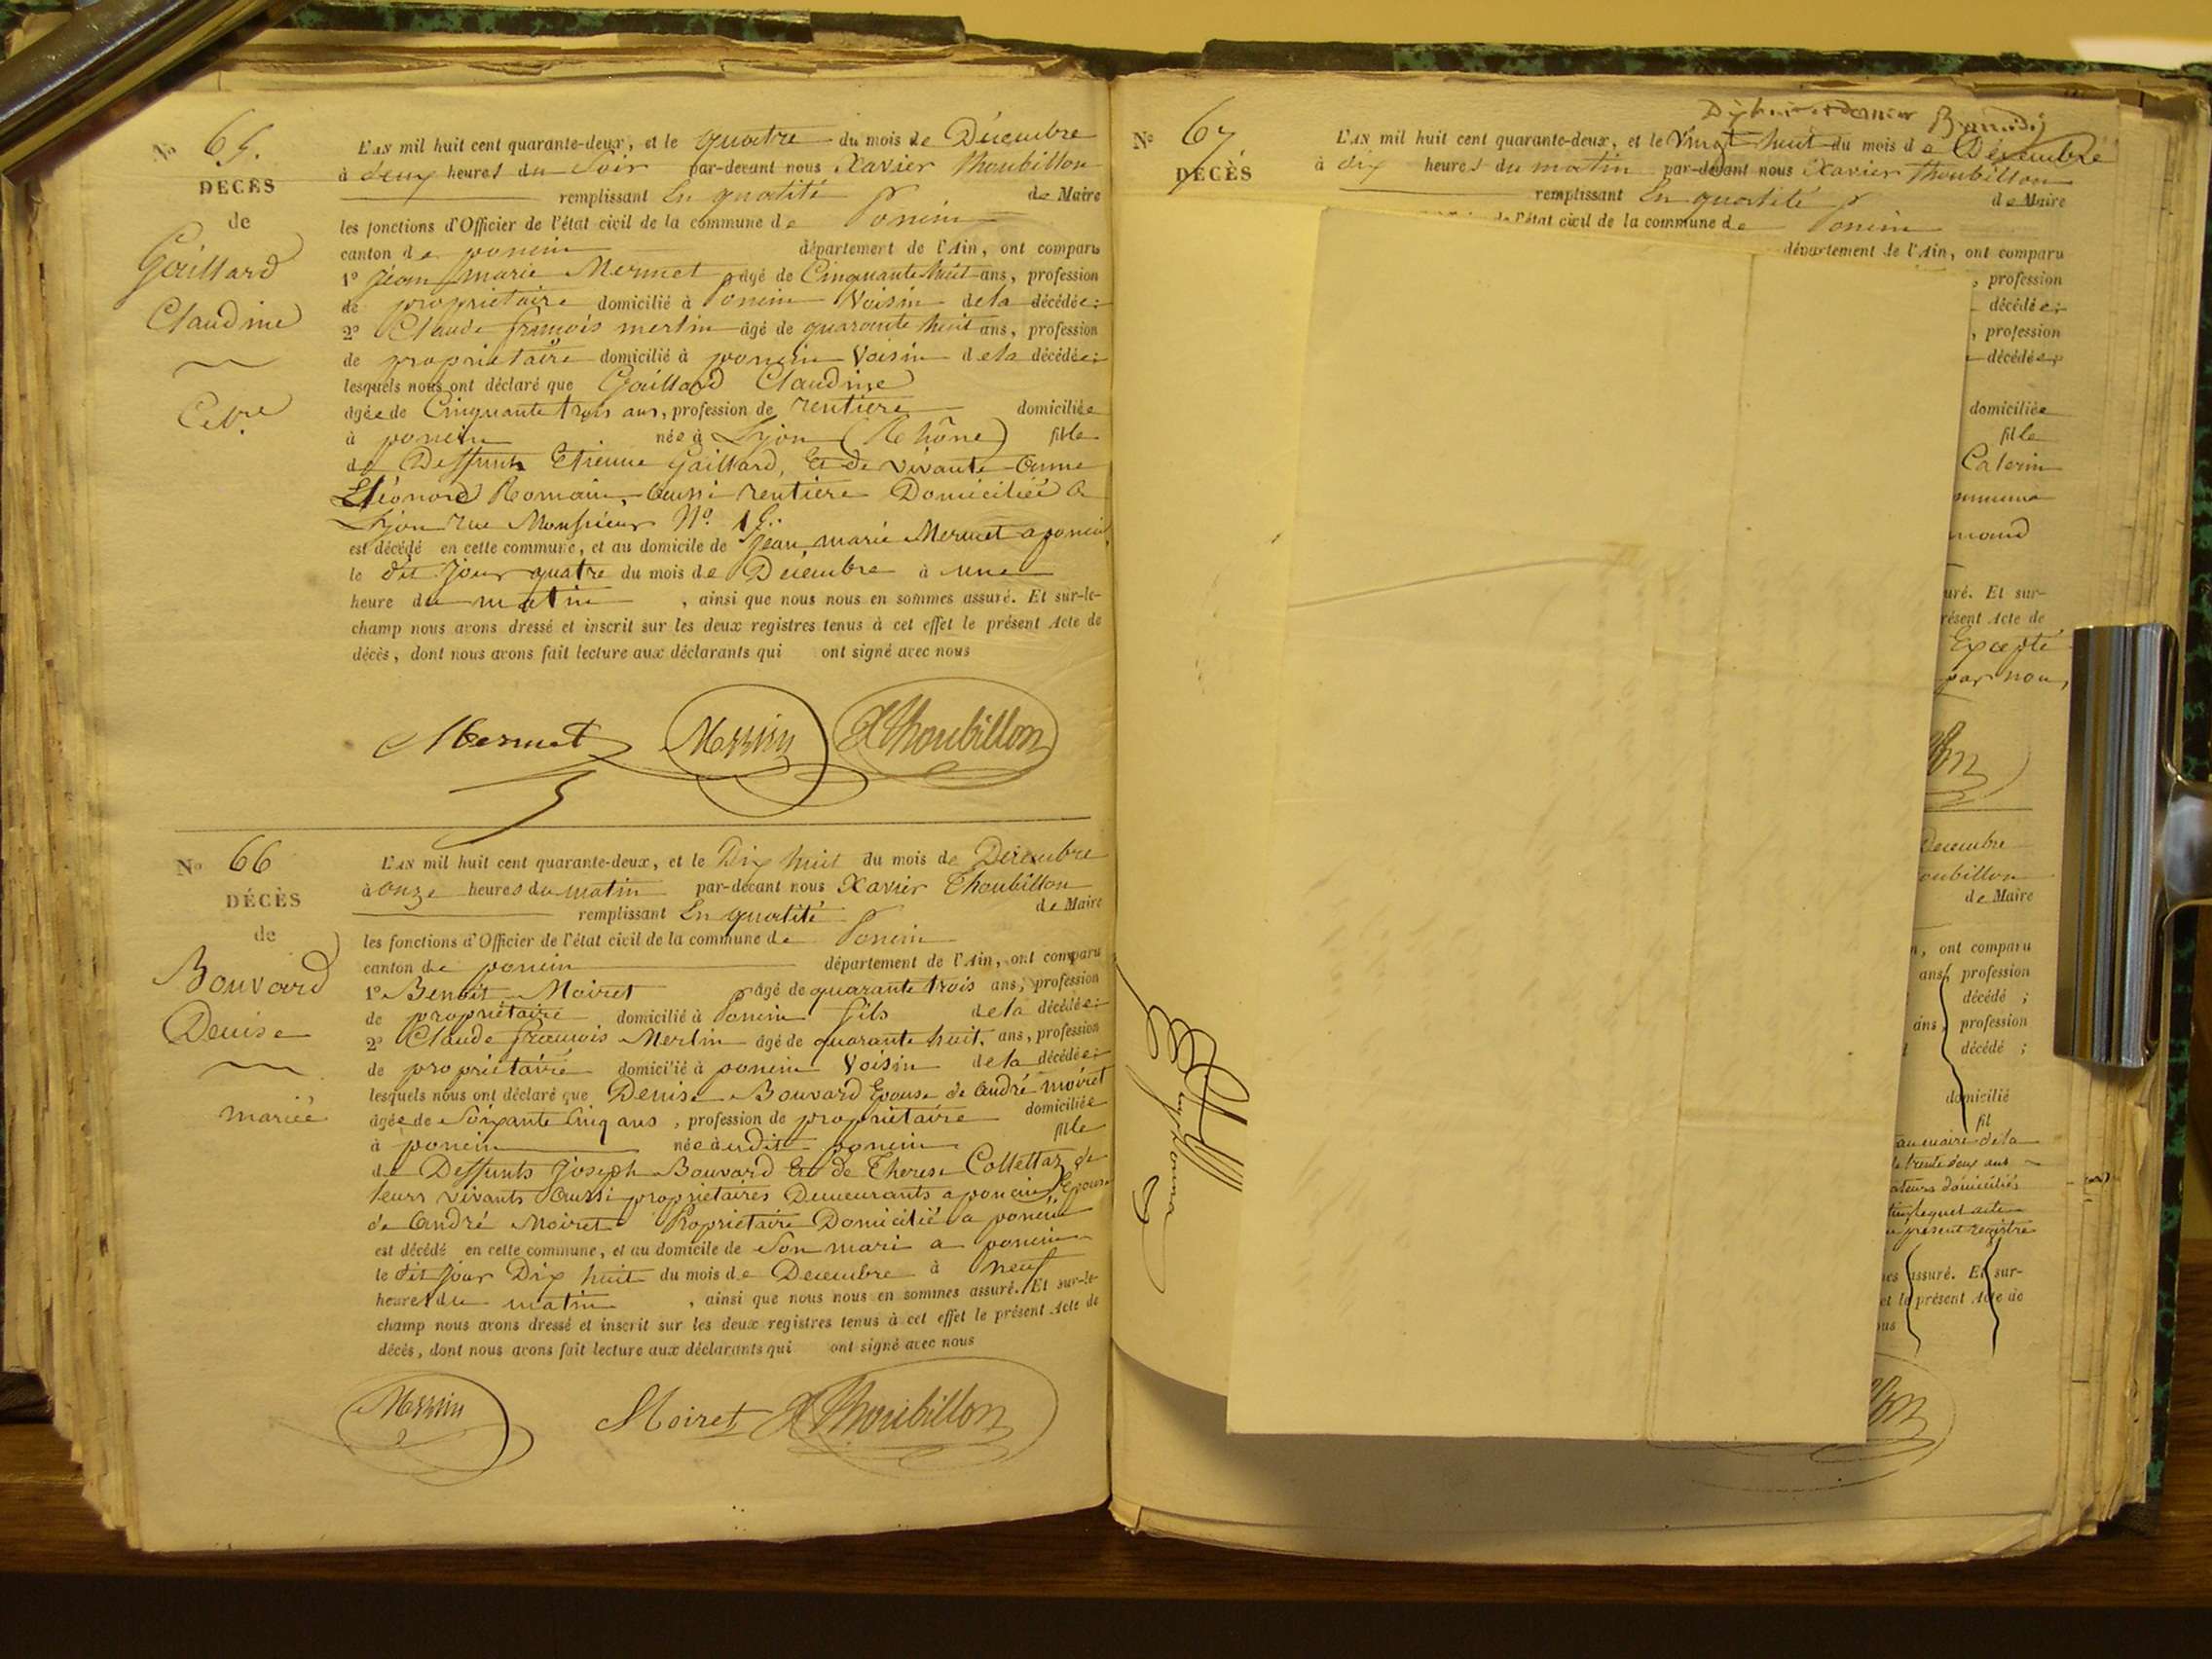 No 65.
DÉCÈS
de
Gaillard
Claudine
Célb.re
L'AN mil huit cent quarante-deux, et le quatre du mois de Décembre
à deux heures du Soir par-devant nous Xavier Thoubillon
remplissant En qualité de Maire
les fonctions d'Officier de l'état civil de la commune de Poncin
canton de poncin département de l'Ain, ont comparu
1º Jean marie Mermet âgé de Cinquante huit ans, profession
de propriétaire domicilié à Poncin Voisin de la décédée;
2º Claude françois merlin âgé de quarante huit ans, profession
de propriétaire domicilié à poncin Voisin de la décédée;
lesquels nous ont déclaré que Gaillard Claudine
âgée de Cinquante trois ans, profession de rentière domiciliée
à poncin née à Lyon (Rhône) fille
de Deffunts Etienne Gaillard, Et de vivante Anne
Eléonord Romain, Aussi rentière Domiciliée a
Lyon rue Monsieur Nº
est décédé en cette commune, et au domicile de Jean marie Mermet a poncin
le dit Jour quatre du mois de Décembre à une
heure du matin , ainsi que nous nous en sommes assuré. Et sur-le-
champ nous avons dressé et inscrit sur les deux registres tenus à cet effet le présent Acte de
décès, dont nous avons fait lecture aux déclarants qui ont signé avec nous
Mermet Merlin Thoubillon
No 66
DÉCÈS
de
Bouvard
Denise
mariée
L'AN mil huit cent quarante-deux, et le Dix huit du mois de Décembre
à onze heures du matin par-devant nous Xavier Thoubillon
remplissant En qualité de Maire
les fonctions d'Officier de l'état civil de la commune de Poncin
canton de poncin département de l'Ain, ont comparu
1º Benoit Moiret âgé de quarante trois ans, profession
de propriétaire domicilié à Poncin fils de la décédée;
2º Claude françois Merlin âgé de quarante huit ans, profession
de propriétaire domicilié à poncin Voisin de la décédée;
lesquels nous ont déclaré que Denise Bouvard Epouse de André moiret
âgée de Soixante Cinq ans , profession de propriétaire domiciliée
à poncin née audit poncin fille
de Deffunts Joseph Bouvard Et de Therese Collettaz de
leurs vivants Aussi propriétaires Demeurants a poncin Epouse
de André Moiret Propriétaire Domicilié a poncin
est décédé en cette commune, et au domicile de Son mari a poncin
le dit jour Dix huit du mois de Décembre à neuf
heures du matin , ainsi que nous nous en sommes assuré. Et sur-le-
champ nous avons dressé et inscrit sur les deux registres tenus à cet effet le présent Acte de
décès, dont nous avons fait lecture aux déclarants qui ont signé avec nous
Merlin Moiret Thoubillon
No 67
DÉCÈS
L'AN mil huit cent quarante-deux, et le Vingt huit du mois de Décembre
à dix heures du matin par-devant nous Xavier Thoubillon
remplissant En qualité de Maire
de l'état civil de la commune de Poncin
département de l'Ain, ont comparu
, profession
décédée;
, profession
décédée;
domiciliée
fille
Caterin
uré. Et sur-
résent Acte de
Excepté
par nous
Décembre
oubillon
de Maire
n, ont comparu
ans, profession
décédé ;
ans, profession
décédé ;
domicilié
fil
au maire de la
trente deux ans
ateurs domiciliés
lequel acte
présent registre
es assuré. Et sur-
et le présent Acte de
ous